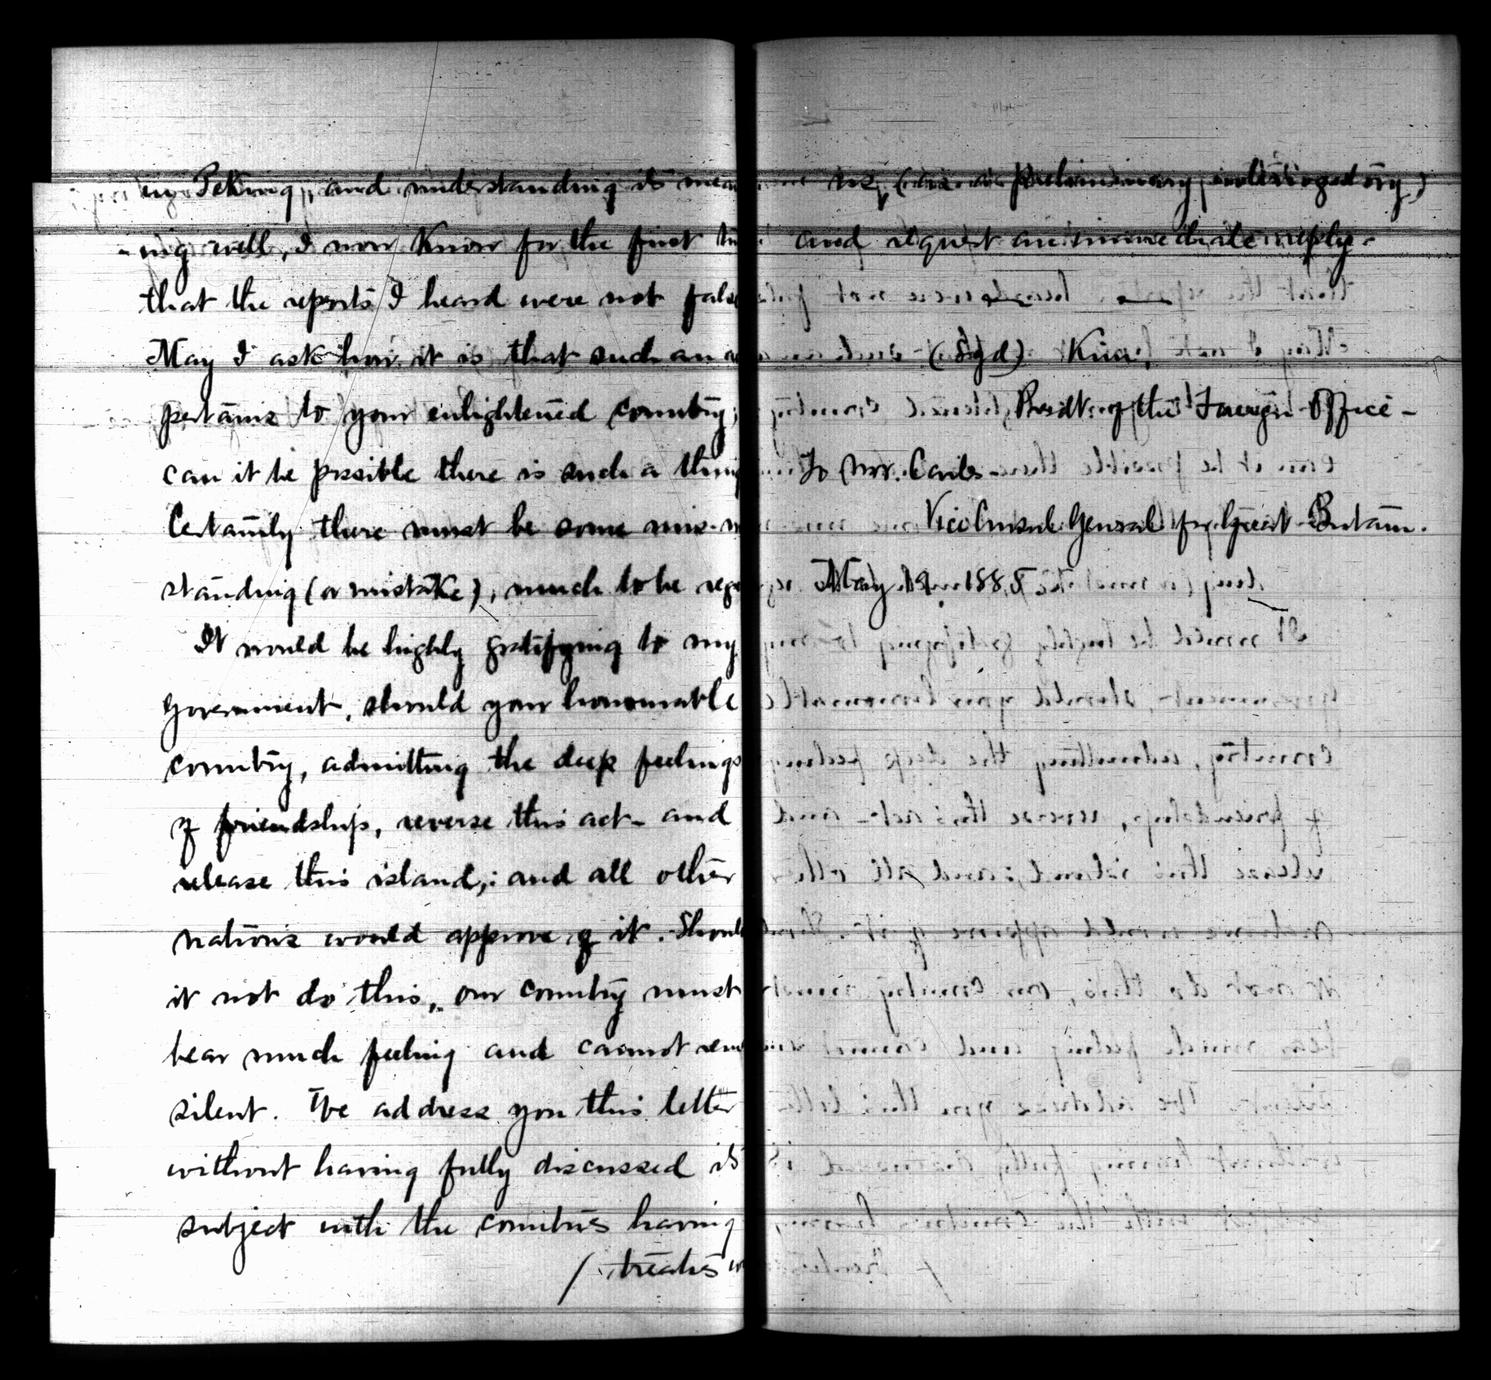 in Peking, and understanding its mean
-ing well, I now know for the first
that the reports I heard were not false
May I ask how it is that such an
pertains to your enlightened country;
can it be possible there is such a thing
Certainly there must be some mis-
standing (or mistake), much to be
It would be highly gratifying to my
Government, should your honourable
country, admitting the deep feelings
of friendship, reverse this act and
release this island; and all other
nations would approve of it. Should
it not do this, our country must
bear much feeling and cannot
silent. We address you this letter
without having fully discussed its
subject with the countries having
/ treaties
us, (as a preliminary interrogatory)
and request an immediate reply.
(Sgd) Kim
Presdt. of the Foreign Office -
To Mr. Carles
Vice Consul General for Great Britain.
May 19 188